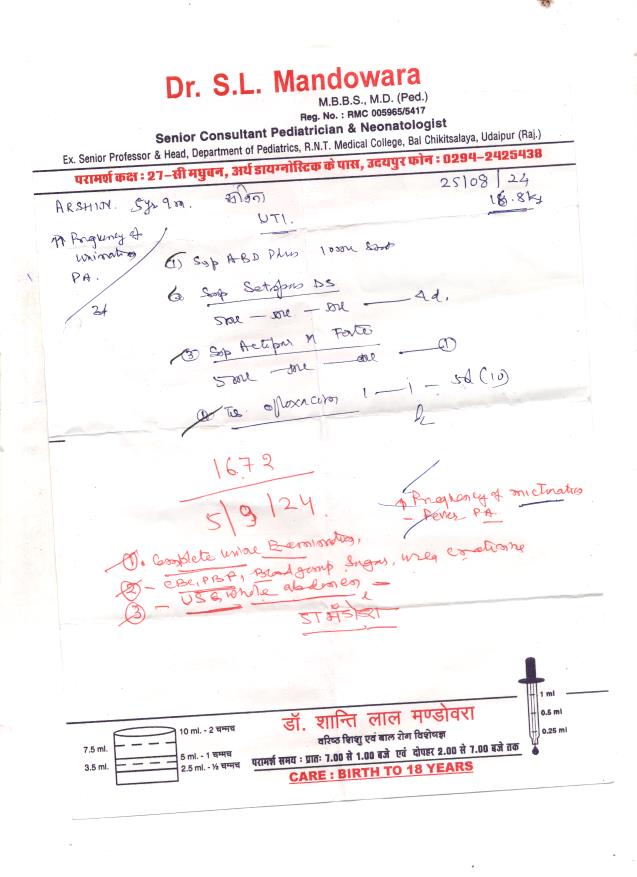 Dr. S.L. Mandowara
M.B.B.S., M.D. (Ped.)
Reg. No. : RMC 005965/5417
Senior Consultant Pediatrician & Neonatologist
Ex. Senior Professor & Head, Department of Pediatrics, R.N.T. Medical College, Bal Chikitsalaya, Udaipur (Raj.)
परामर्श कक्ष : 27-सी मधुबन, अर्थ डायग्नोस्टिक के पास, उदयपुर फोन : 0294-2425438
25/08/24
ARSHIN. 5yr 9m.
UTI.
Frequency of
urination
PA.
① Syp ABD Plus
② Syp DS
4d.
③ Syp M Forte
5ml
Ofloxacin 1 — 1 — 5d (10)
16.72
5/9/24.
↑ Frequency of micturation
- Fever PA
①. Complete urine Examination,
② - CBC, PBF, Blood group, Sugar, urea creatinine
③ - USG whole abdomen
10 ml. - 2 चम्मच
7.5 ml.
5 ml. - 1 चम्मच
3.5 ml.
2.5 ml. - ½ चम्मच
डॉ. शान्ति लाल मण्डोवरा
वरिष्ठ शिशु एवं बाल रोग विशेषज्ञ
परामर्श समय : प्रातः 7.00 से 1.00 बजे एवं दोपहर 2.00 से 7.00 बजे तक
CARE : BIRTH TO 18 YEARS
1 ml
0.5 ml
0.25 ml